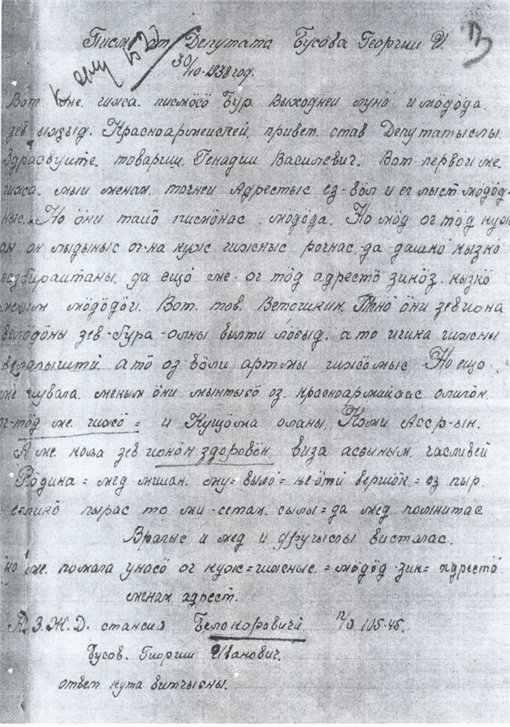 Писм от Депутата Бусова Георгии И.
30/10-1938 год.
Кому
Вот ме. гижа. писмосо Бур Выходней лунӧ и мӧдӧда.
зев ыжыд. Красноармейскей, привет. став Депутатыслы.
Здравуите. товарищ. Генадии Василевич. Вот первои ме.
гижа. мыи менам. точней Адрестыс ез-вӧл и ег лыст мӧдӧд-
ныс. Но ӧни тайӧ писмӧнас мӧдӧда. Но мӧд ог тӧд куж
ог-на куж гижсныс. рочнас-да-дашкӧ кызкӧ
да ещо ме-ог тӧд адрестӧ зикӧз. кызкӧ
меным мӧдӧдӧи. Вот. тов. Ветошкин. Менӧ ӧни зев-иона
велӧдӧны зев-бура-олны вылти ловыд. а то ичика гижсны
а тӧ оз вӧли артмы гижӧмыс Но ещо
меным ӧни мынтысӧ оз. красноармийцас
ог-тӧд ме. гижӧ = и Кущӧма оланы. Коми Асср-ын.
А ме. кола зев ионӧн здоровӧн виза асвыным. часливей
Рӧдина = мед мишан. му = выло = не-ӧти вершӧк = оз пыр.
еслинӧ пырас то ми-сетам. сылы = да мед помнитас
Врагыс и мед и другыслы висталас.
но ме. помала унасӧ ог куж = гижсные. = мӧдӧд-зик = адрестӧ
менам адрест.
З. Ж. Д. стансия Белокоровичи п/я 115-45.
Бусов. Гиоргии Иванович.
ответ кута витчысны.